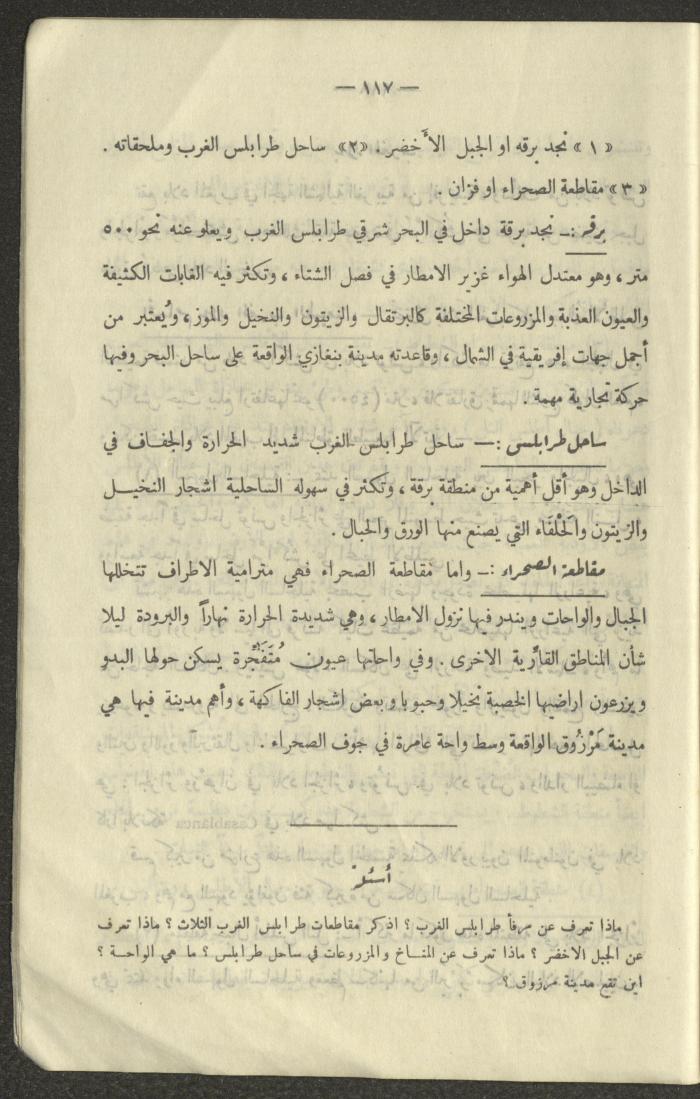 — ١١٧ —
« ١ » نجد برقه او الجبل الأخضر . «٢» ساحل طرابلس الغرب وملحقاته .
« ٣ » مقاطعة الصحراء او فزان .
برقة :ــ نجد برقة داخل في البحر شرقي طرابلس الغرب ويعلو عنه نحو ٥٠٠
متر ، وهو معتدل الهواء غزير الامطار في فصل الشتاء ، وتكثر فيه الغابات الكثيفة
والعيون العذبة والمزروعات المختلفة كالبرتقال والزيتون والنخيل والموز ، ويُعتبر من
أجمل جهات إفريقية في الشمال ، وقاعدته مدينة بنغازي الواقعة على ساحل البحر وفيها
حركة تجارية مهمة .
ساحل طرابلس :— ساحل طرابلس الغرب شديد الحرارة والجفاف في
الداخل وهو أقل أهمية من منطقة برقة ، وتكثر في سهوله الساحلية اشجار النخيل
والزيتون والحَلْفَاء التي يصنع منها الورق والحبال .
مقاطعة الصحراء :ــ واما مقاطعة الصحراء فهي مترامية الاطراف تتخللها
الجبال والواحات ويندر فيها نزول الامطار ، وهي شديدة الحرارة نهاراً والبرودة ليلا
شأن المناطق القارّية الاخرى . وفي واحاتها عيون مُتَفَجِّرة يسكن حولها البدو
ويزرعون اراضيها الخصبة نخيلا وحبوبا وبعض اشجار الفاكهة ، وأهم مدينة فيها هي
مدينة مَرْزُوق الواقعة وسط واحة عامرة في جوف الصحراء .
أسئلة
ماذا تعرف عن مرفأ طرابلس الغرب ؟ اذكر مقاطعات طرابلس الغرب الثلاث ؟ ماذا تعرف
عن الجبل الاخضر ؟ ماذا تعرف عن المناخ والمزروعات في ساحل طرابلس ؟ ما هي الواحة ؟
اين تقع مدينة مرزوق ؟